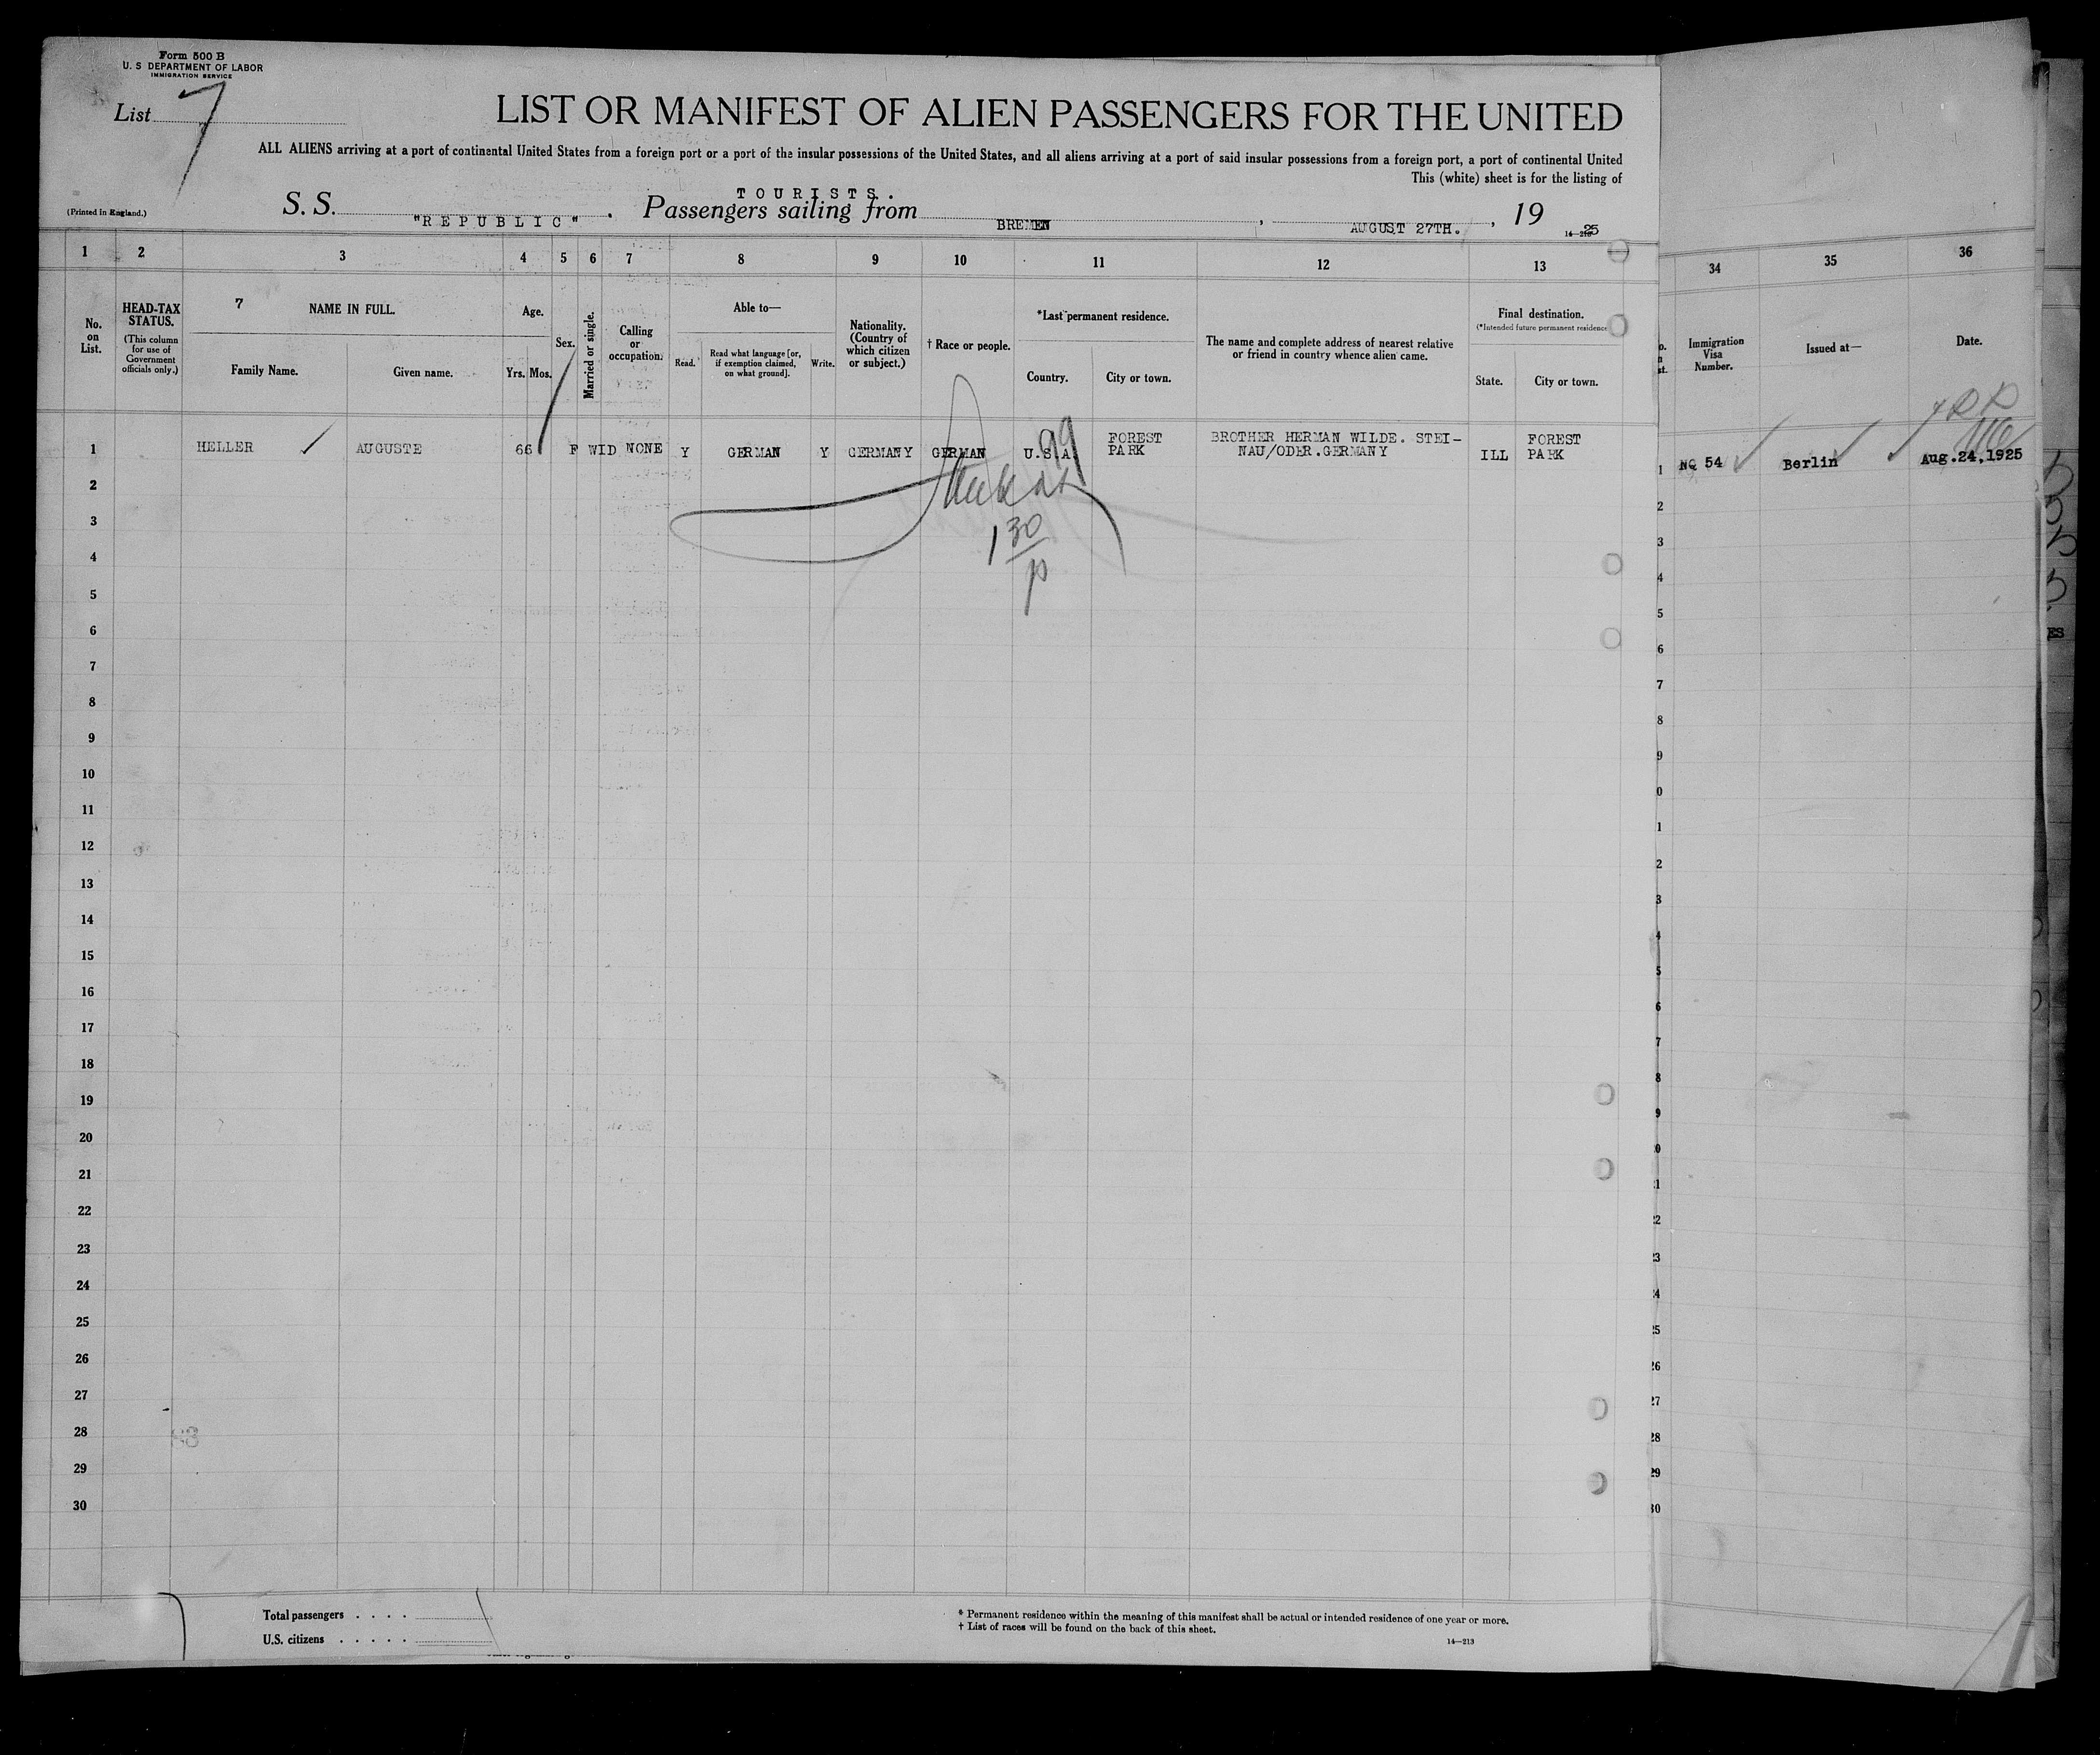 Form 500 B
U. S DEPARTMENT OF LABOR
IMMIGRATION SERVICE
List 7
LIST OR MANIFEST OF ALIEN PASSENGERS FOR THE UNITED
ALL ALIENS arriving at a port of continental United States from a foreign port or a port of the insular possessions of the United States, and all aliens arriving at a port of said insular possessions from a foreign port, a port of continental United
This (white) sheet is for the listing of
TOURISTS.
(Printed in England.)
S. S. "REPUBLIC" . Passengers sailing from BREMEN , AUGUST 27TH. , 19 25
1 2 3 4 5 6 7 8 9 10 11 12 13 34 35 36
No. on List.
HEAD-TAX STATUS.
(This column for use of Government officials only.)
7 NAME IN FULL.
Family Name. Given name.
Age.
Yrs. Mos.
Sex.
Married or single.
Calling or occupation.
Able to—
Read. Read what language [or, if exemption claimed, on what ground]. Write.
Nationality. (Country of which citizen or subject.)
† Race or people.
*Last permanent residence.
Country. City or town.
The name and complete address of nearest relative or friend in country whence alien came.
Final destination.
(*Intended future permanent residence
State. City or town.
Immigration Visa Number.
Issued at—
Date.
1 HELLER AUGUSTE 66 F WID NONE Y GERMAN Y GERMANY GERMAN U.S.A. FOREST PARK BROTHER HERMAN WILDE. STEI-
NAU/ODER.GERMANY ILL FOREST PARK 1 NQ 54 Berlin Aug.24,1925
99
1 30
p
2
3
4
5
6
7
8
9
10
11
12
13
14
15
16
17
18
19
20
21
22
23
24
25
26
27
28
29
30
Total passengers . . . .
U.S. citizens . . . . .
* Permanent residence within the meaning of this manifest shall be actual or intended residence of one year or more.
† List of races will be found on the back of this sheet.
14—213